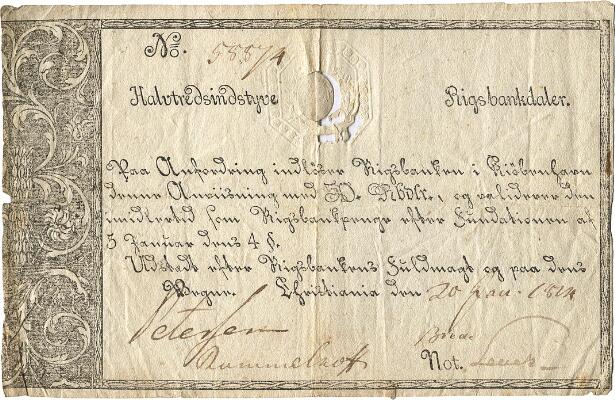 No. 58874
Halvtredsindstyve Rigsbankdaler.
Paa Anfordring indlöser Rigsbanken i Kiöbenhavn
denne Anviisning med 50. Rbdlr., og validerer den
imidlertid som Rigsbankpenge efter Fundationen af
5 Januar dens 4 §.
Udstedt efter Rigsbankens Fuldmagt og paa dens
Vegne. Christiania den 20 Jan. 1814
Petersen
Rummelhoff
Not.